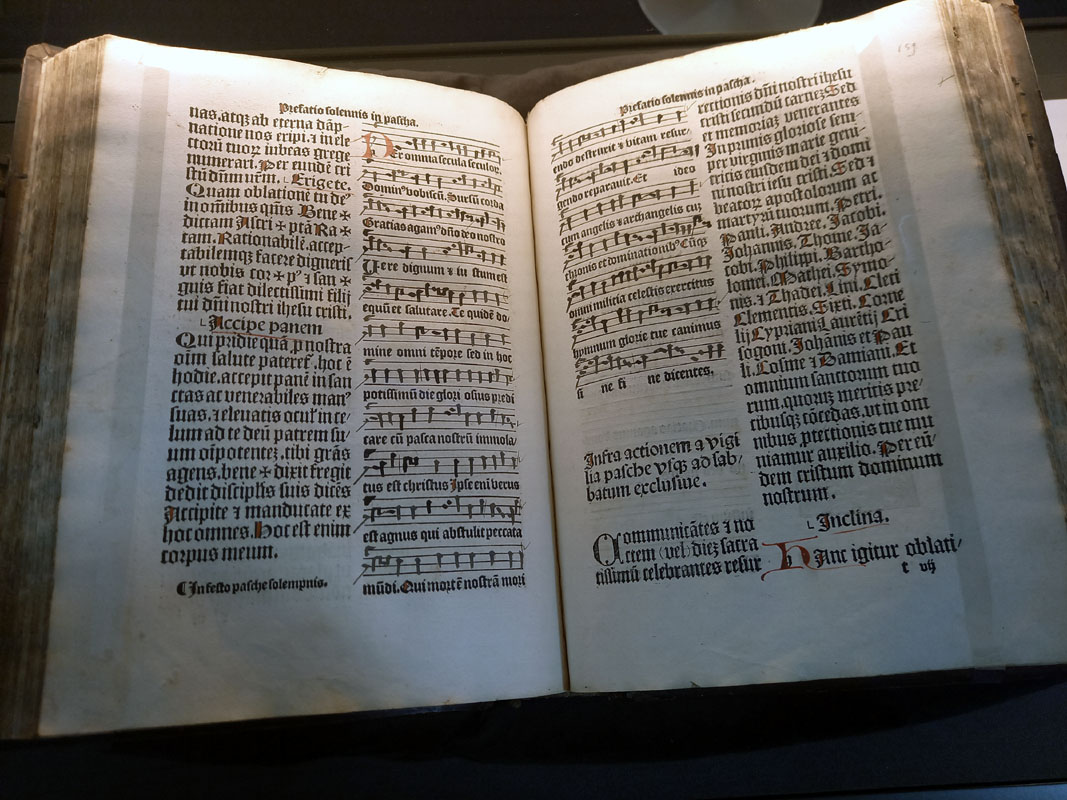 Prefatio solennis in pascha.
nas. atqȝ ab eterna dāp⸗
natione nos eripi. ⁊ in ele⸗
ctorū tuoꝝ iubeas grege
numerari. Per eundē cri
stū dūm nr̄m. Erigete.
Quam oblationē tu de⸗
in om̄ibus qm̄s Bene ✠
dictam Ascri ✠ ptā Ra ✠
tam. Rationabilē. accep⸗
tabilemqȝ facere digneris
vt nobis cor ✠ pꝰ ⁊ san ✠
guis fiat dilectissimi filij
tui dn̄i nostri ihesu cristi.
Accipe panem
Qui pridie quā p nostra
oīm salute pateret. hoc ē
hodie. accepit panē in san
ctas ac venerabiles manꝰ
suas. ⁊ eleuatis oculꝭ in ce⸗
lum ad te deū patrem su⸗
um oīpotentē. tibi grās
agens. bene ✠ dixit fregit
dedit disciplīs suis dicēs
Accipite ⁊ manducate ex
hoc omnes. Hoc est enim
corpus meum.
¶ In festo pasche solempnis.
Per omnia secula seculoꝝ.
Dominꝰ vobiscū. Sursū corda
Gratias agamꝰ dn̄o deo nostro
Vere dignum ⁊ iustum est
equū et salutare. Te quidē do⸗
mine omni tēpore sed in hoc
potissimū die glori osius predi
care cū pasca nostrū immola⸗
tus est christus Ipse eni verus
est agnus qui abstulit peccata
mūdi. Qui mortē nostrā mori
Prefatio solennis in pascha.
159
endo destruxit ⁊ vitam resur⸗
gendo reparauit. Et ideo
cum angelis ⁊ archangelis cū
thronis et dominationibꝰ Cūqȝ
omni milicia celestis exercitus
hymnum glorie tue canimus
si ne fi ne dicentes.
Infra actionem a vigi
lia pasche vsqȝ ad sab⸗
batum exclusiue.
Communicātes ⁊ no
ctem (vel) dieȝ sacra
tissimū celebrantes resur
rectionis dn̄i nostri ihesu
cristi secundū carneȝ. Sed
et memoriaȝ venerantes
Inprimis gloriose sem⸗
per virginis marie geni⸗
tricis eiusdem dei ⁊ domi
ni nostri iesu cristi Sed ⁊
beatoꝝ apostolorum ac
martyrū tuorum. Petri.
Pauli. Andree. Jacobi.
Johannis. Thome Ja⸗
cobi. Philippi. Bartho⸗
lomei. Mathei. Symo⸗
nis. ⁊ Thadei. Lini. Cleti
Clementis. Sixti. Corne
lij Cypriani. Laurētij Cri
sogoni. Johānis et Pau
li. Cosme ⁊ Damiani. Et
omnium sanctorum tuo
rum. quoruȝ meritis pre⸗
cibusqȝ cōcedas. vt in om
nibus ꝓtectionis tue mu
niamur auxilio. Per eū⸗
dem cristum dominum
nostrum.
Inclina.
Hanc igitur oblati⸗
t vij